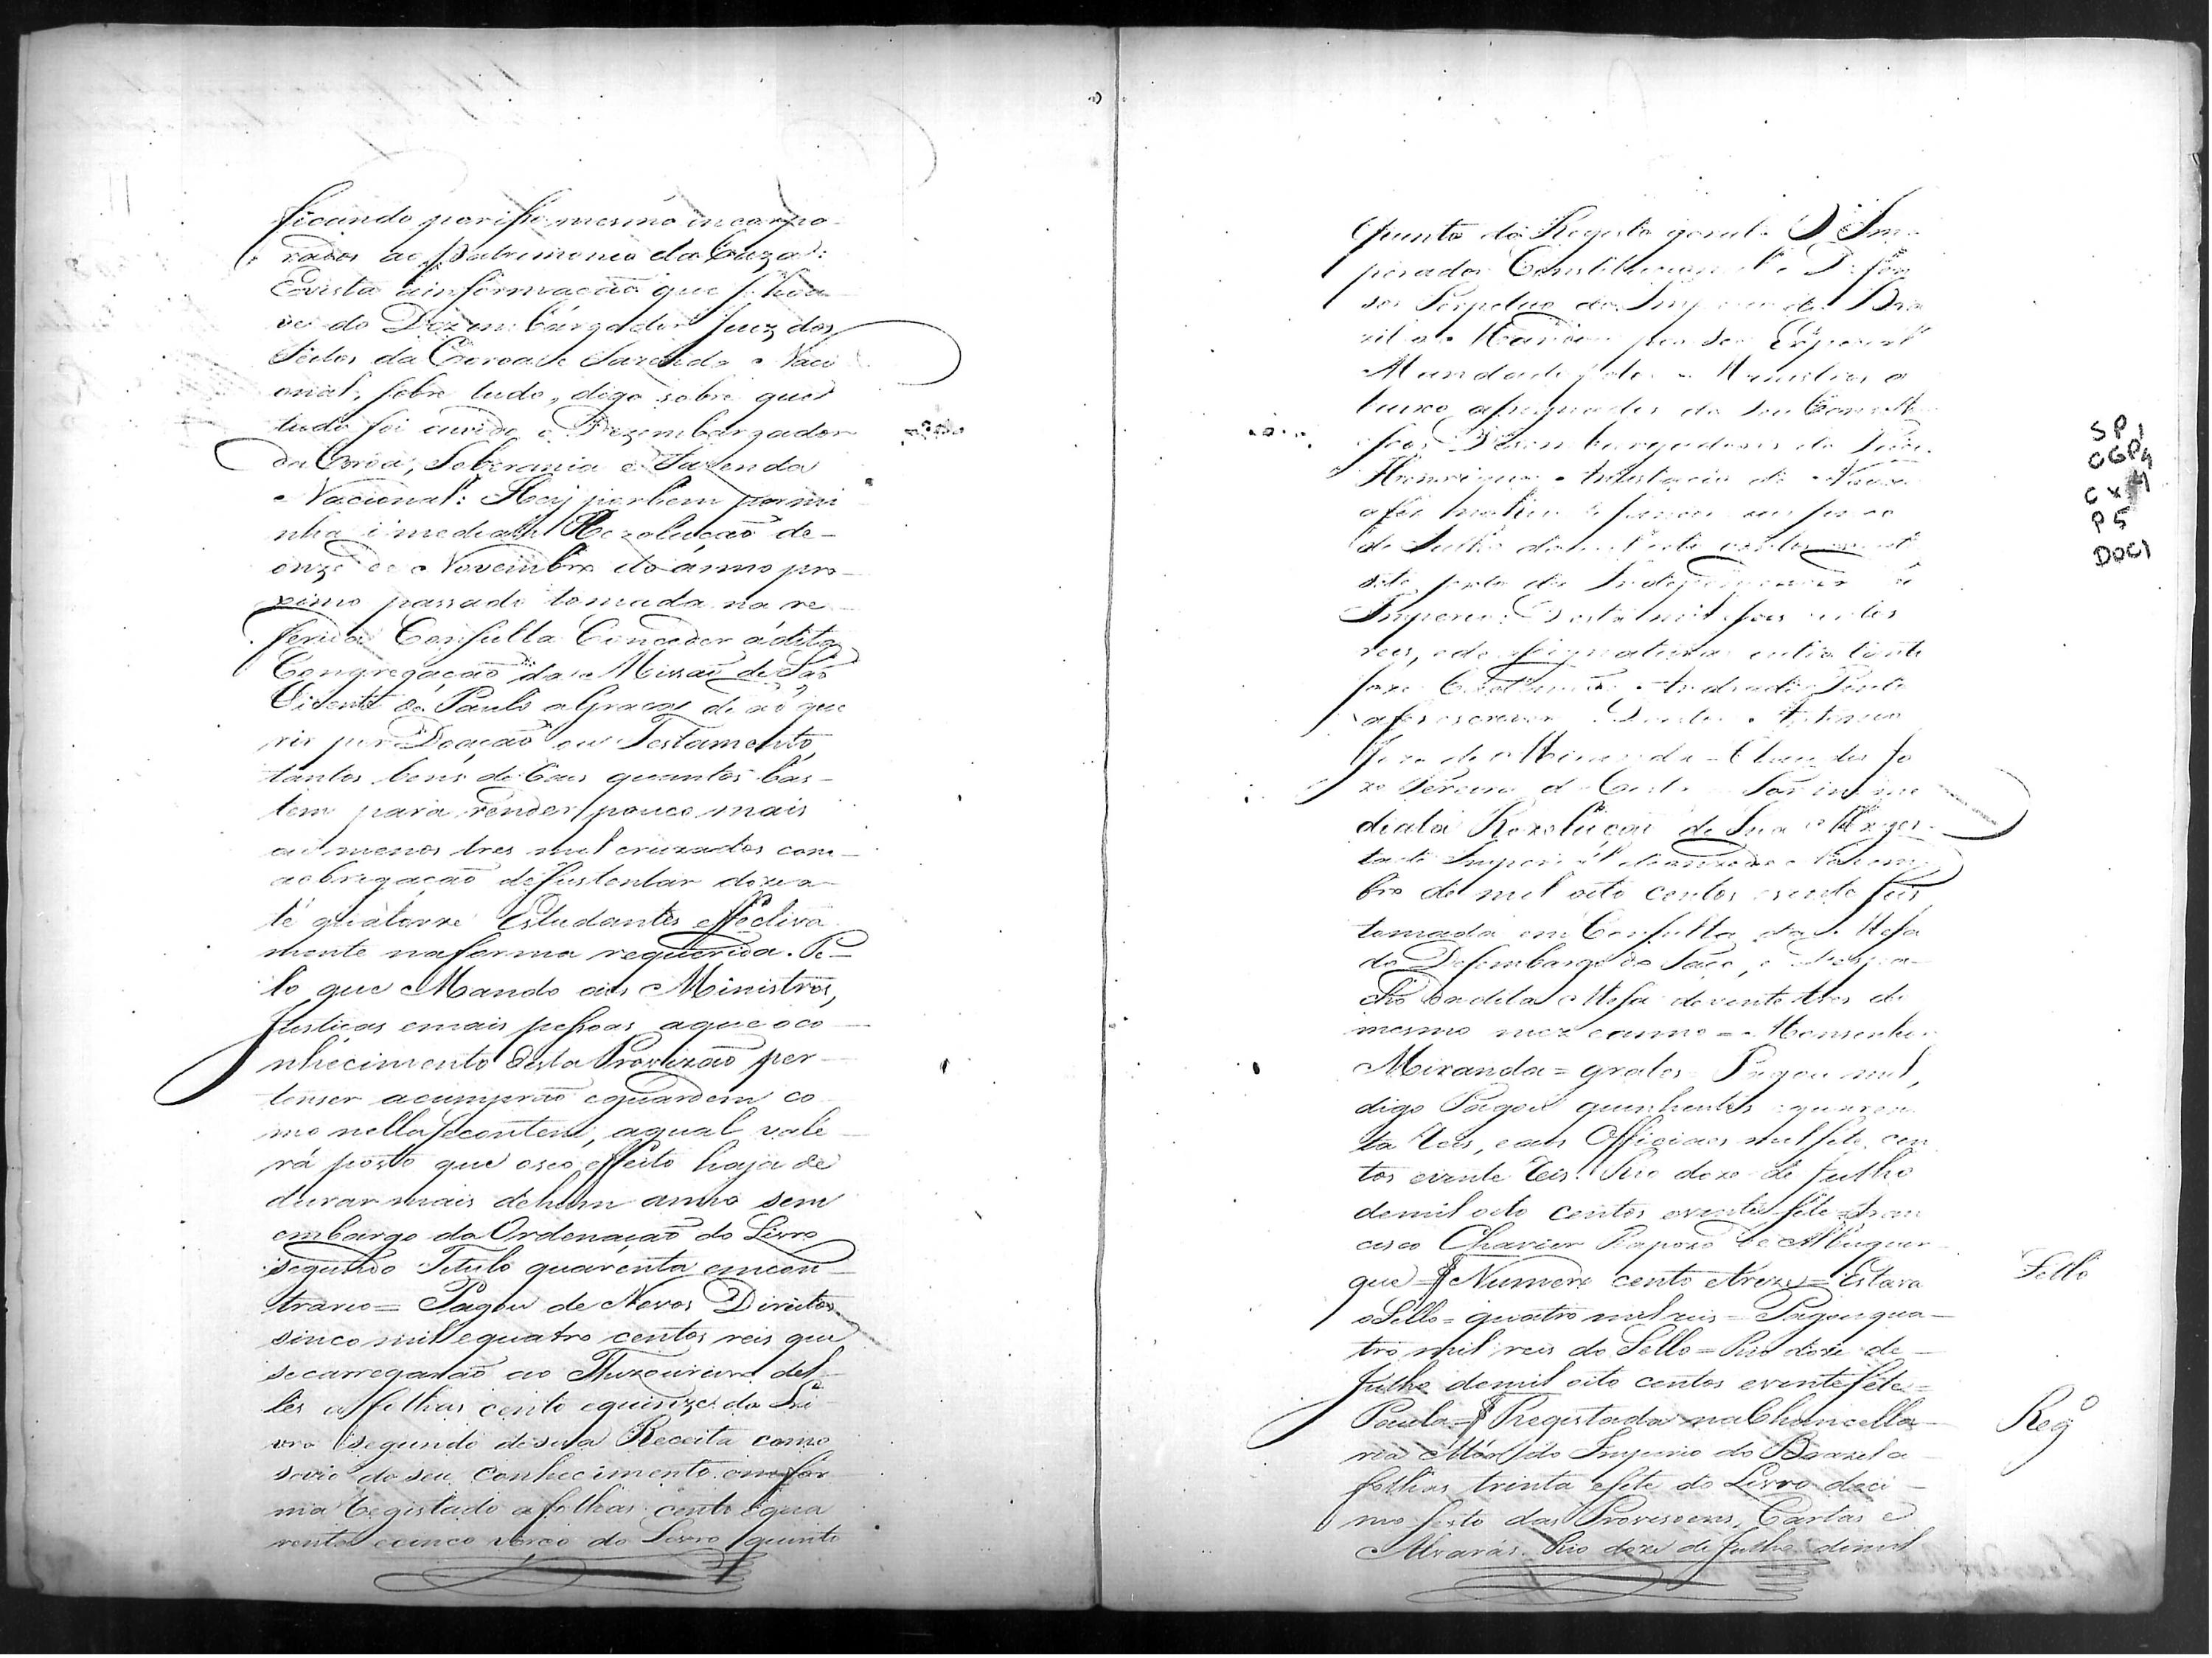 ficando por isso mesmo incorpo
rados ao Patrimonio da Caza:
E vista a informação que houve
ve do Dezembargador Juiz dos
Feitos da Coroa e Fazenda Naci
onal, sobre tudo, digo sobre que
tudo foi ouvido o Dezembargador
da Coroa, Soberania e Fazenda
Nacional: Hey por bem por mi
nha immediata Rezolução de
onze de Novembro do anno pro
ximo passado tomada na re
ferida Consulta Conceder á dita
Congregação da Missão de São
Vicente de Paulo a Graça de adque
rir por Doação ou Testamento,
tantos bens de Raiz quantos bas-
tem para render pouco mais
ou menos tres mil cruzados com
a obrigação de sustentar doze a-
té quatorze Estudantes effectiva
mente na forma requerida. Pe-
lo que Mando aos Ministros,
Justiças e mais pessoas a que o co
nhecimento desta Provizão per-
tenser a cumprão e guardem co
mo nella se contem, a qual vale
rá posto que o seo effeito haja de
durar mais de hum anno sem
embargo da Ordenação do Livro
segundo Titulo quarenta em con
trario = Pagou de Novos Direitos
sinco mil e quatro centos reis que
se carregarão ao Thezoureiro del
les a folhas cento e quinze do Li
vro segundo de sua Receita como
se vio do seu conhecimento em for
ma Registado a folhas cento e qua
renta e cinco verso do Livro quinto
quinto do Registo geral. O Im
perador Constitucional e Defen
sor Perpetuo do Imperio do Bra
zil o Mandou por seu Especial
Mandado pelos Ministros a
baixo assignados do seu Conselho
Dezembargadores do Paço.
a fez no Rio de Janeiro
de Julho de mil oito centos e vinte
sete, sexto da Independencia e
Imperio. Desta mil seis centos
reis, e de assignaturas outro tanto
Joze Caetano de Andrade Pinto
a fez escrever. Doutor Antonio
Joze de Miranda = Clemente Jo
ze Pereira da Costa = Por imme
diata Rezolução de Sua Mages
tade Imperial de onze de Novem
bro de mil oito centos e vinte seis
tomada em Consulta da Meza
do Dezembargo do Paço, e Despa
cho da dita Meza de vinte tres do
mesmo mez e anno = Monsenhor
Miranda = gratis = Pagou mil,
digo Pagou quinhentos e quaren
ta reis, e aos Officiaes mil sete cen
tos e vinte reis. Rio doze de Julho
de mil oito centos e vinte sete = Fran
cisco Chavier Rapozo de Albuquer
que = Numero cento e treze = Estava
o Sello = quatro mil reis = Pagou qua-
tro mil reis do Sello = Rio doze de
Julho de mil oito centos e vinte sete =
Paula = Registada na Chancella
ria Mór do Imperio do Brazil a
folhas trinta e sete do Livro deci
mo sexto das Provisoens, Cartas e
Alvarás. Rio doze de Julho de mil
Sello
Regº
SP1
CGP4
Cx
P5
DOC1